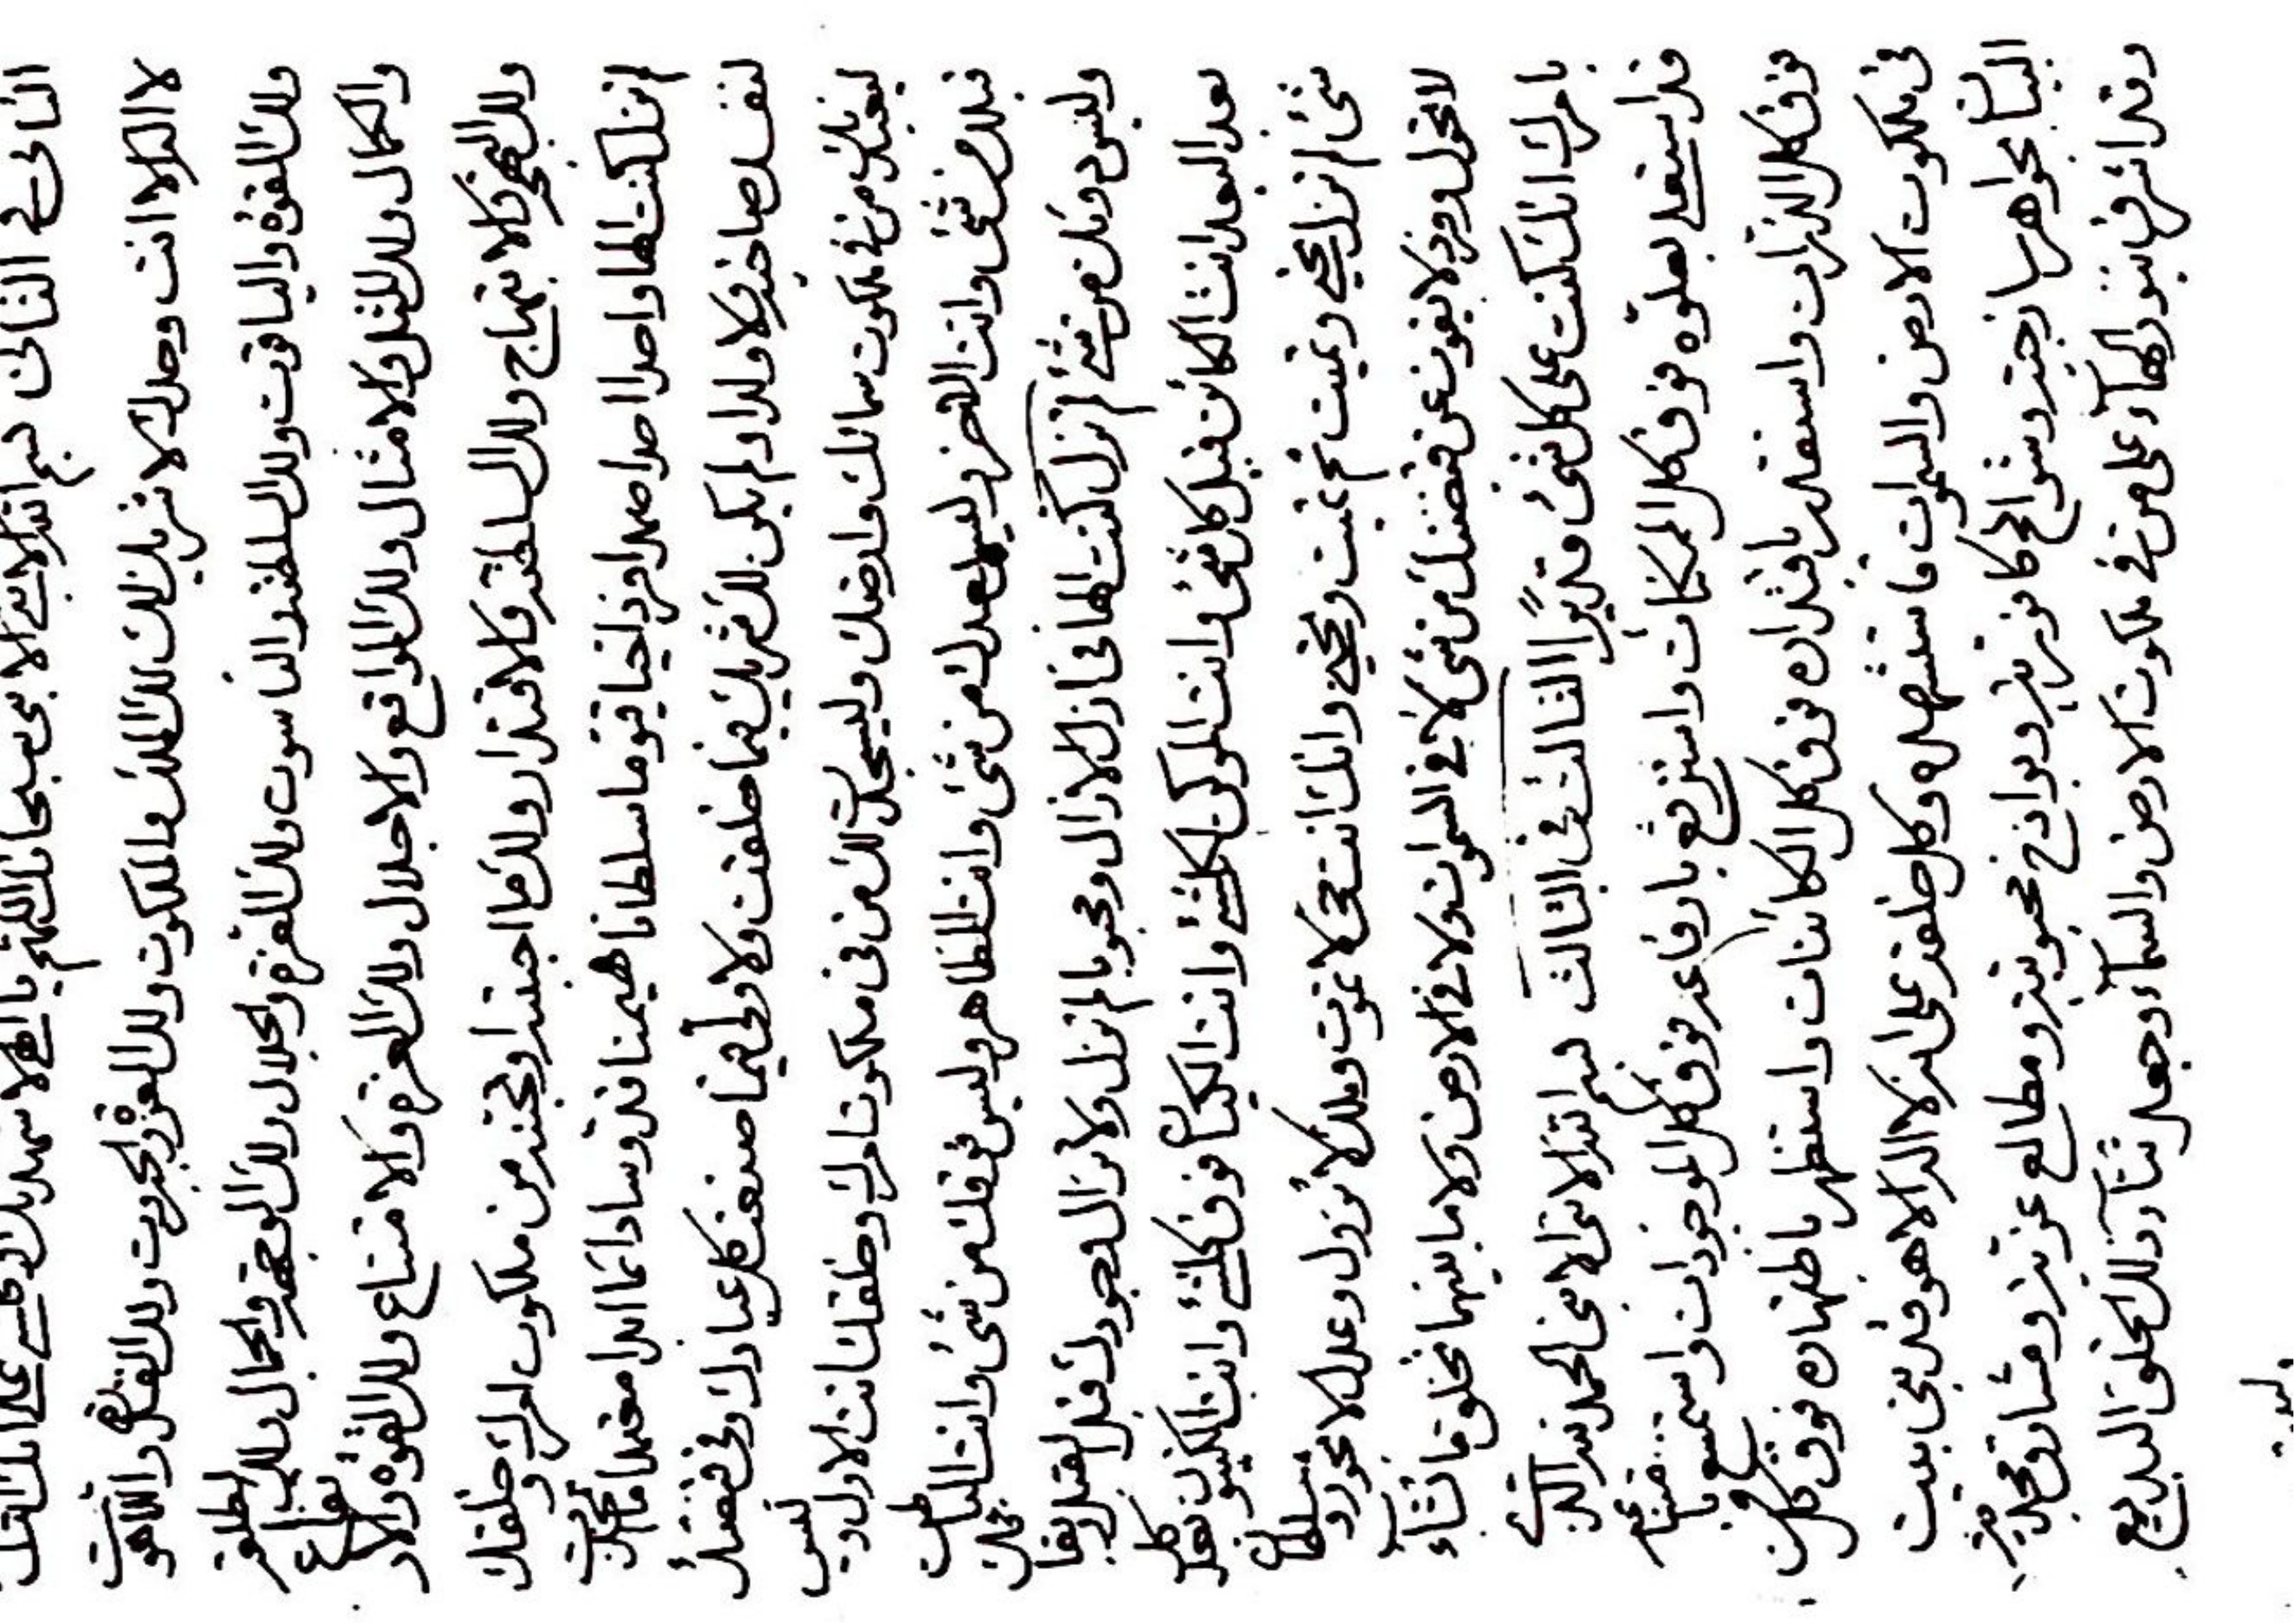 الثانى فى الثانى بسم الله الابهى الابهى سبحانك اللهم يا الهى لاشهدنك وكلشئ على انك انت
لا اله الا انت وحدك لا شريك لك لك الملك والملكوت ولك العز والجبروت ولك واللاهوت
ولك القوة والياقوت ولك السلطنة والناسوت ولك العزة والجلال ولك الوجهة والجمال ولك الطلعة
والكمال ولك المثل والامثال ولك المواقع والاجلال ولك العزة والامتناع ولك القوة والارتفاع
ولك البهجة والابتهاج ولك السلطنة والاقتدار ولك ما احببته او تحبنه من ملكوت امرك وخلقك
لم تزل كنت الها واحدا احدا صمدا فردا حيا قيوما سلطانا مهيمنا قدوسا دائما ابدا معتمدا ما اتخذت
لنفسك صاحبة ولا ولدا ولم يكن لك شريك فيما خلقت ولا ولى فيما صنعت كل عبادك وفى قبضتك
ليعبدنك من فى ملكوت سمائك وارضك وليسجدن لك من فى ملكوت امرك وخلقك انت الاول وليس
قبلك من شئ وانت الاخر وليس بعدك من شئ وانت الظاهر وليس فوقك من شئ وانت الباطن
وليس دونك من شئ لم تزل كنت الها فى ازل الازال ومحبوبا لم تزل ولا تزال لوجودك قبل القبل وبقائك
بعد البعد انت الكائن قبل كلشئ وانت المكون لكلشئ وانت الكينان فوق كلشئ وانت الكينون بعد كل
شئ لم تزل تحيى وتميت ثم تميت وتحيى وانك انت حى لا تموت وملك لا تزول وعدل لا تجور وسلطان
لا تحول وفرد لا يفوت عن قبضتك من شئ لا فى السموات ولا فى الارض ولا ما بينهما تخلق ما تشاء
بامرك انك كنت على كلشئ قديرا الثالث فى الثالث بسم الله الابهى الابهى الحمد لله الذى
قد استعلى بعلوه فوق كل الممكنات واسترفع بارتفاعه فوق كل الموجودات واستمنع بامتناعه
فوق كل الذرات واستقدر باقتداره فوق كل الكائنات واستظهر باظهاره فوق كل من
فى ملكوت الارض والسموات فاستشهده وكل خلقه على انه لا اله الا هو قد
بجواهر ساذجية وشوامخ كافورية وبواذخ محبوبية ومطالع عزية ومشارق مجدية
وقد اشرق بنور البهاء على من فى ملكوت الارض والسماء وجعله ثناء ذلك الخلق البديع